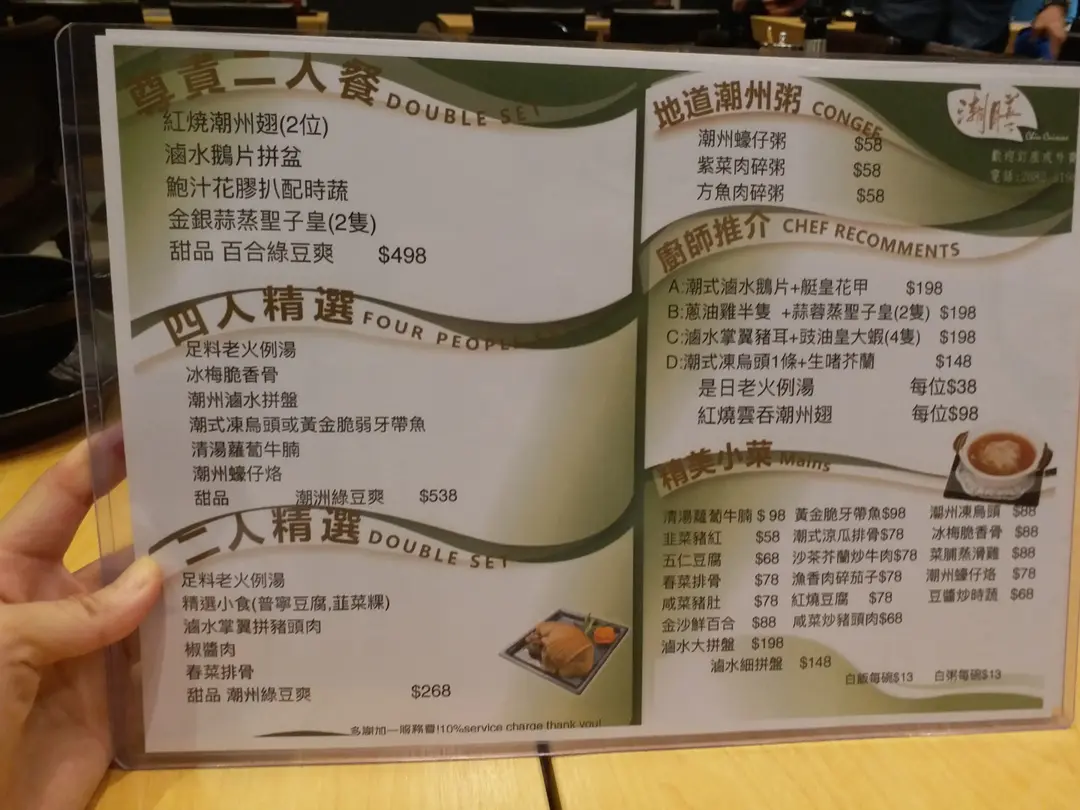 尊貴二人餐 DOUBLE SET
紅燒潮州翅(2位)
滷水鵝片拼盆
鮑汁花膠扒配時蔬
金銀蒜蒸聖子皇(2隻)
甜品 百合綠豆爽 $498
四人精選 FOUR PEOPLE
足料老火例湯
冰梅脆香骨
潮州滷水拼盤
潮式凍烏頭或黃金脆弱牙帶魚
清湯蘿蔔牛腩
潮州蠔仔烙
甜品 潮洲綠豆爽 $538
二人精選 DOUBLE SET
足料老火例湯
精選小食(普寧豆腐,韮菜粿)
滷水掌翼拼豬頭肉
椒醬肉
春菜排骨
甜品 潮州綠豆爽 $268
多謝加一服務費!10%service charge thank you!
潮膳
Chiu Cuisine
地道潮州粥 CONGEE
潮州蠔仔粥 $58
紫菜肉碎粥 $58
方魚肉碎粥 $58
廚師推介 CHEF RECOMMENTS
A:潮式滷水鵝片+艇皇花甲 $198
B:蔥油雞半隻 +蒜蓉蒸聖子皇(2隻) $198
C:滷水掌翼豬耳+豉油皇大蝦(4隻) $198
D:潮式凍烏頭1條+生啫芥蘭 $148
是日老火例湯 每位$38
紅燒雲吞潮州翅 每位$98
精美小菜 Mains
清湯蘿蔔牛腩 $98 黃金脆牙帶魚$98 潮州凍烏頭 $88
韭菜豬紅 $58 潮式涼瓜排骨$78 冰梅脆香骨 $88
五仁豆腐 $68 沙茶芥蘭炒牛肉$78 菜脯蒸滑雞 $88
春菜排骨 $78 漁香肉碎茄子$78 潮州蠔仔烙 $78
咸菜豬肚 $78 紅燒豆腐 $78 豆醬炒時蔬 $68
金沙鮮百合 $88 咸菜炒豬頭肉$68
滷水大拼盤 $198
滷水細拼盤 $148
白飯每碗$13 白粥每碗$13